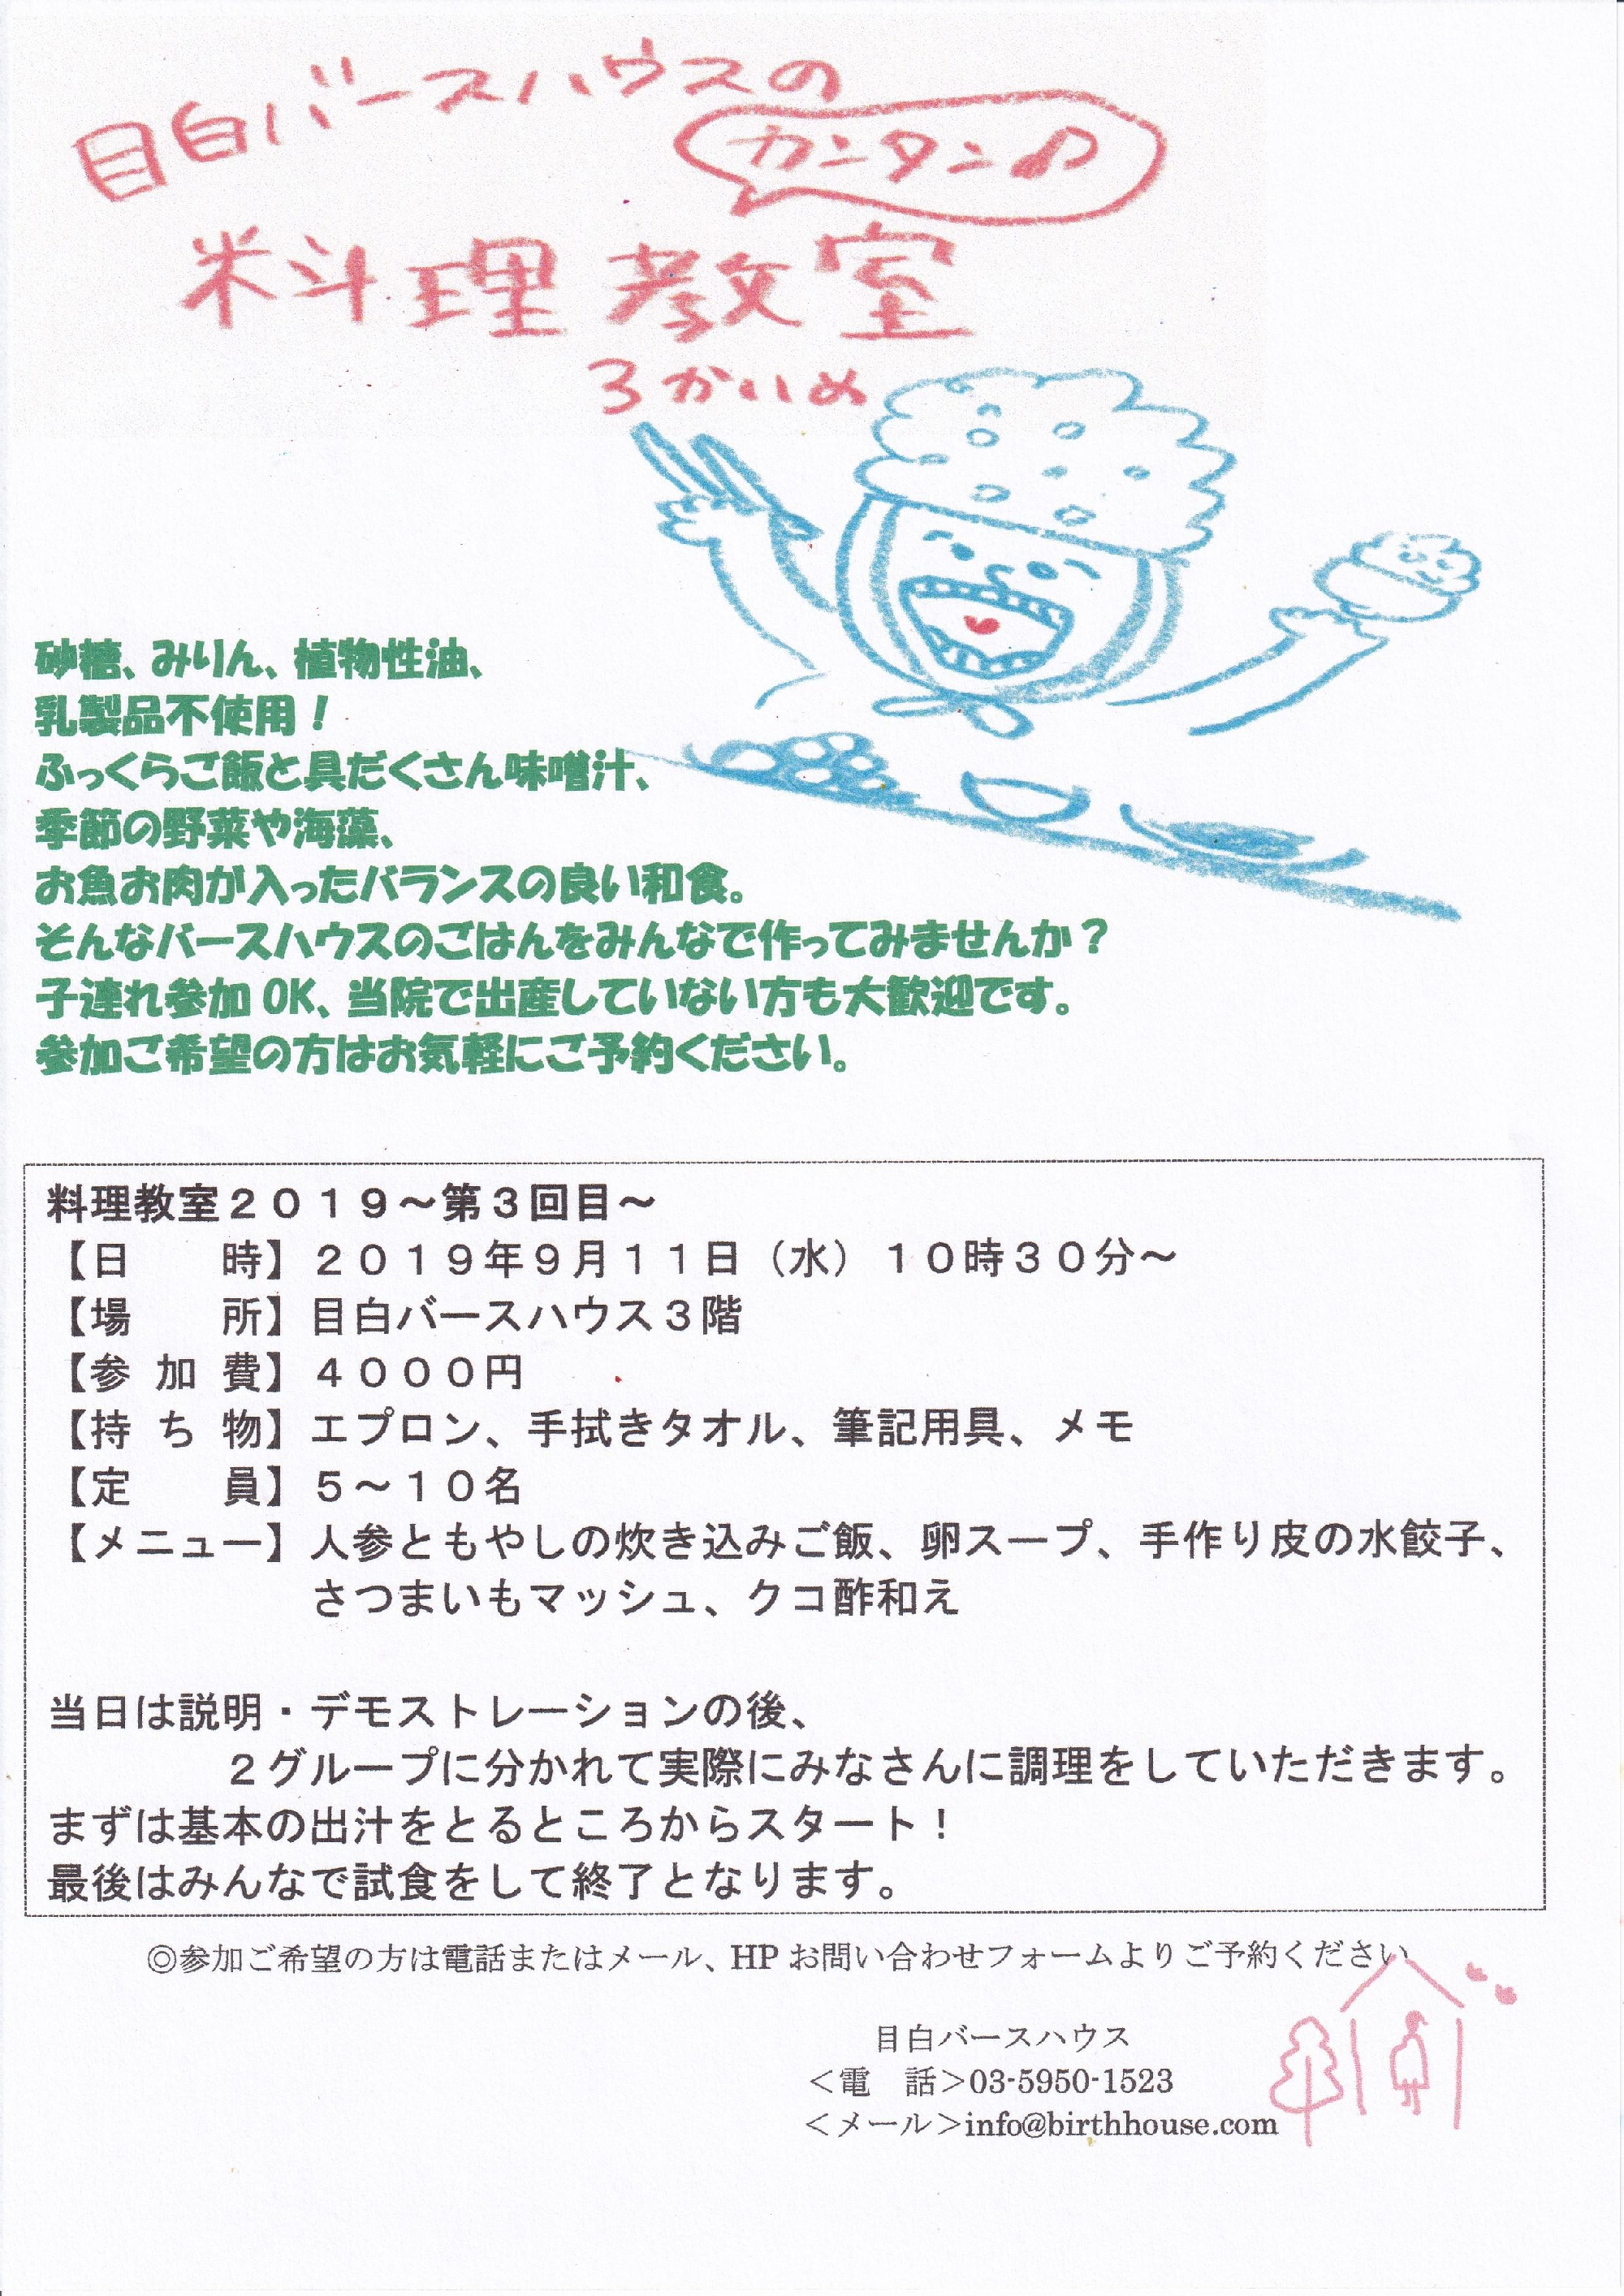 目白バースハウスの
カンタン♪
料理教室
3かいめ
砂糖、みりん、植物性油、
乳製品不使用！
ふっくらご飯と具だくさん味噌汁、
季節の野菜や海藻、
お魚お肉が入ったバランスの良い和食。
そんなバースハウスのごはんをみんなで作ってみませんか？
子連れ参加 OK、当院で出産していない方も大歓迎です。
参加ご希望の方はお気軽にご予約ください。
料理教室２０１９～第３回目～
【日　　時】２０１９年９月１１日（水）１０時３０分～
【場　　所】目白バースハウス３階
【参 加 費】４０００円
【持 ち 物】エプロン、手拭きタオル、筆記用具、メモ
【定　　員】５～１０名
【メニュー】人参ともやしの炊き込みご飯、卵スープ、手作り皮の水餃子、
さつまいもマッシュ、クコ酢和え
当日は説明・デモストレーションの後、
２グループに分かれて実際にみなさんに調理をしていただきます。
まずは基本の出汁をとるところからスタート！
最後はみんなで試食をして終了となります。
◎参加ご希望の方は電話またはメール、HP お問い合わせフォームよりご予約ください
目白バースハウス
＜電　話＞03-5950-1523
＜メール＞info@birthhouse.com